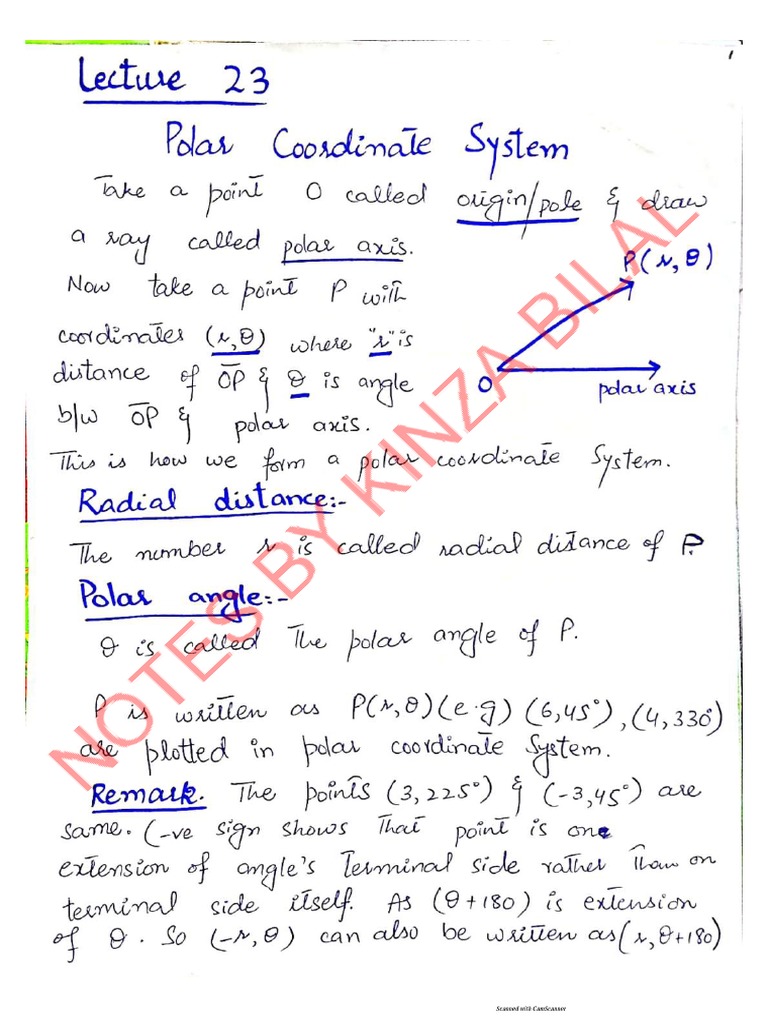 1
Lecture 23
Polar Coordinate System
Take a point O called origin/pole & draw
a ray called polar axis.
P(r, θ)
Now take a point P with
coordinates (r,θ) where "r" is
distance of OP & θ is angle
O
polar axis
b/w OP & polar axis.
This is how we form a polar coordinate system.
Radial distance:-
The number r is called radial distance of P.
Polar angle:-
θ is called The polar angle of P.
P is written as P(r,θ)(e.g) (6,45°),(4,330°)
are plotted in polar coordinate system.
Remark. The points (3,225°) & (-3,45°) are
same. (-ve sign shows That point is on
extension of angle's Terminal side rather Than on
terminal side itself. As (θ+180) is extension
of θ. So (-r,θ) can also be written as (r,θ+180)
NOTES BY KINZA BILAL
Scanned with CamScanner